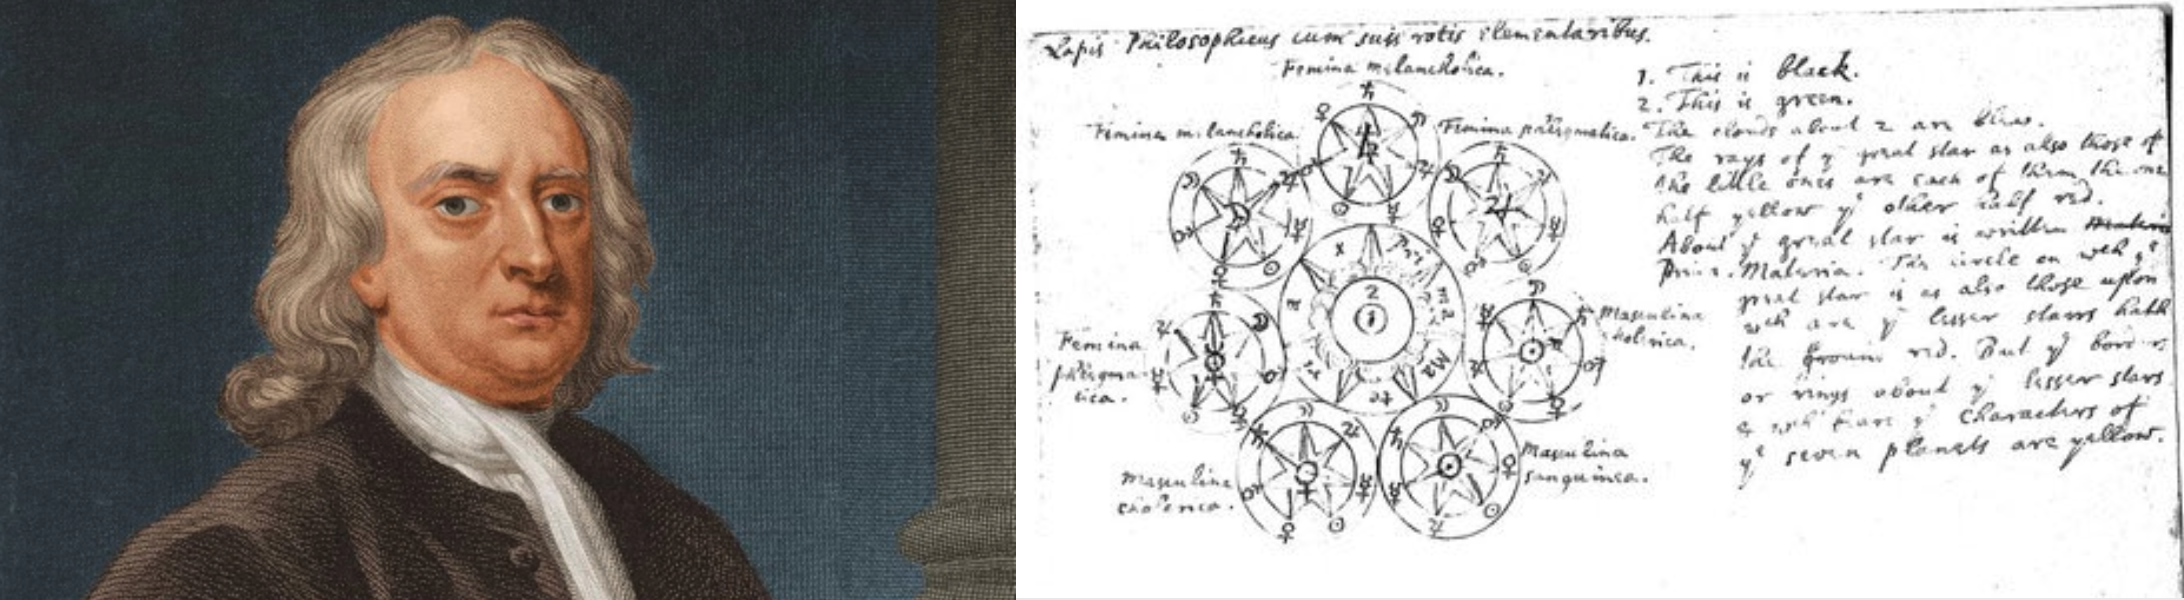 Lapis Philosophicus cum suis rotis elementaribus.
Femina melancholica.
Femina melancholica.
Femina phlegmatica.
Femina
phlegma
tica.
Masculina
cholerica.
Masculina
cholerica.
Masculina
sanguinea.
x
Pri
Ma
te
ri
2
1
1. This is black.
2. This is green.
The clouds about 2 are blew.
The rays of yᵉ great star as also those of
the little ones are each of them the one
half yellow yᵉ other half red.
About yᵉ great star is written
Prima Materia. The circle on wch yᵉ
great star is as also those upon
wch are yᵉ lesser starrs hath
the ground red. But yᵉ
or rings about yᵉ lesser stars
yᵉ characters of
yᵉ seven planets are yellow.